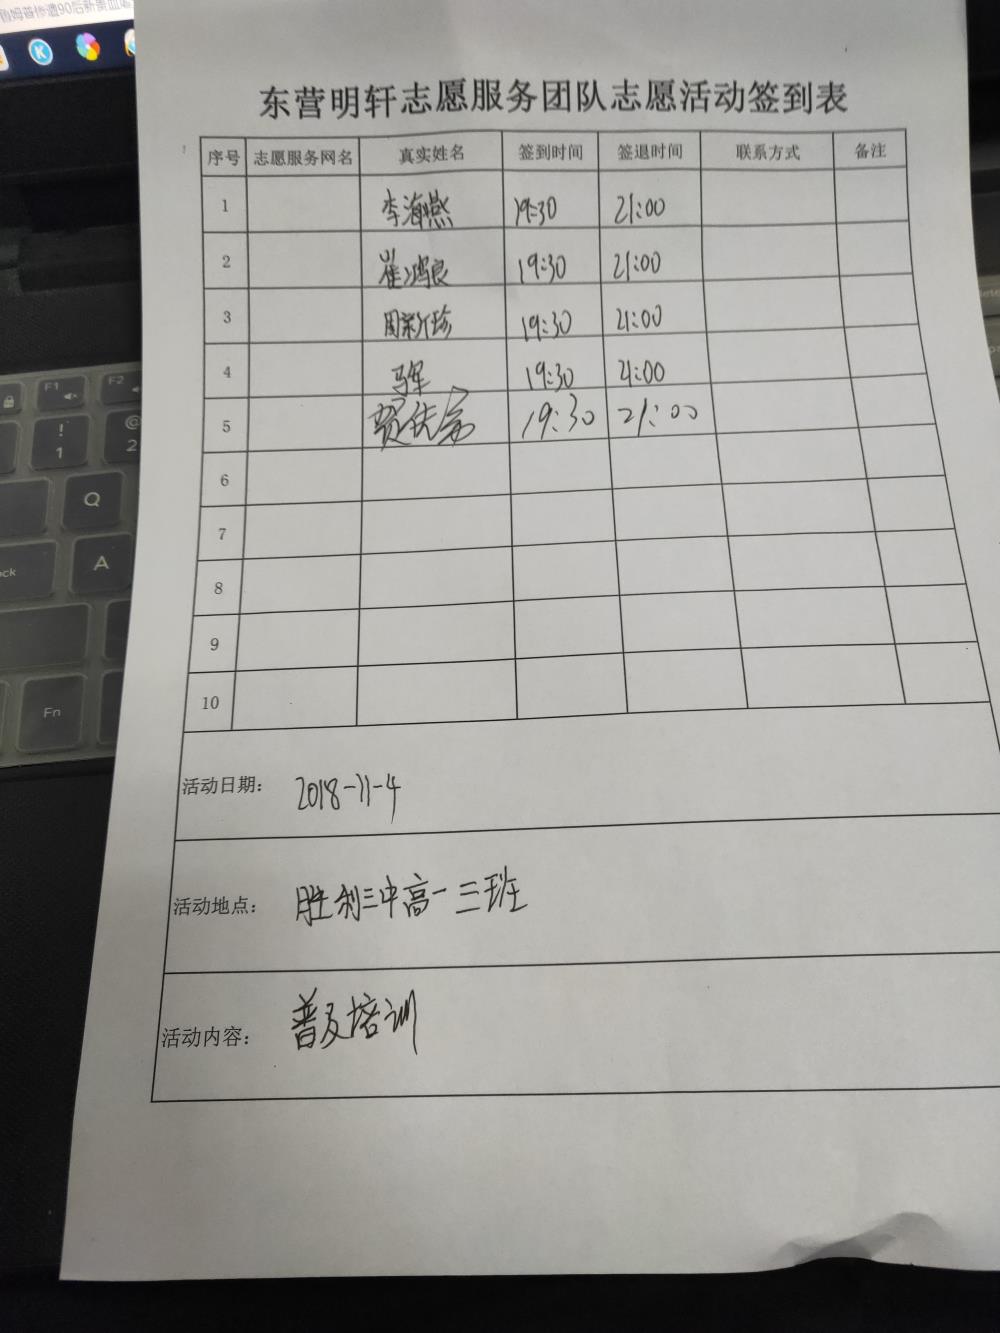 东营明轩志愿服务团队志愿活动签到表
序号 志愿服务网名 真实姓名 签到时间 签退时间 联系方式 备注
1 李海燕 19:30 21:00
2 崔鸿良 19:30 21:00
3 周新珍 19:30 21:00
4 马军 19:30 21:00
5 19:30 21:00
6
7
8
9
10
活动日期： 2018-11-4
活动地点： 胜利三中高一三班
活动内容： 普及培训
F1
F2
!
1
@
2
Q
A
Fn
K